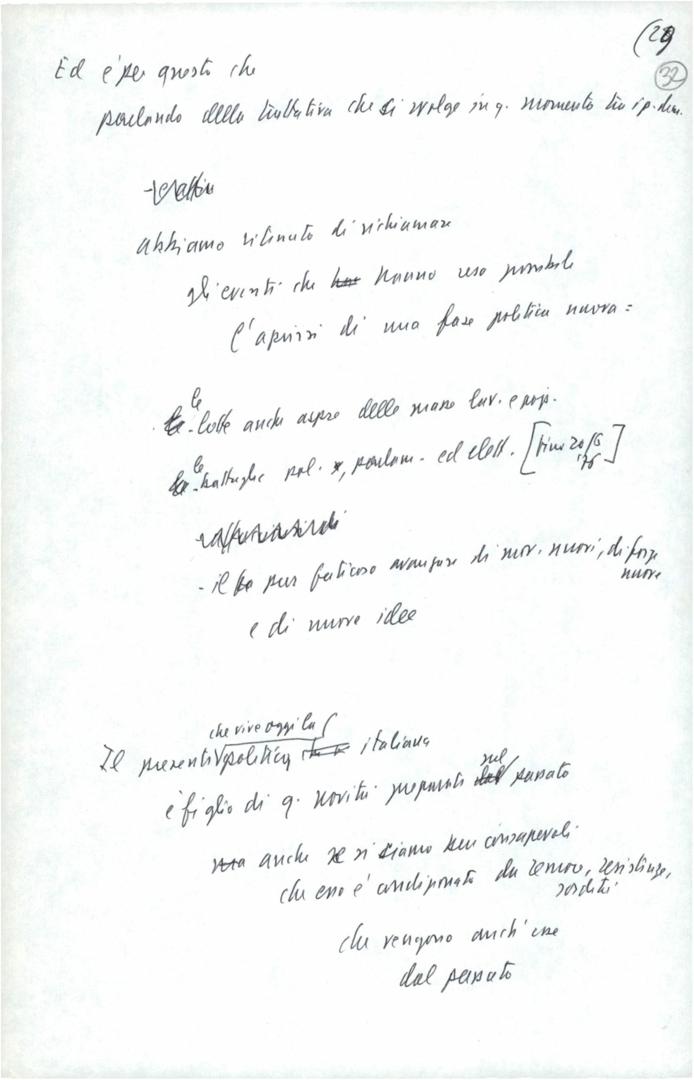 (29
32
Ed è per questo che
parlando della trattativa che si svolge in q. momento tra i p. dem.
abbiamo ritenuto di richiamare
gli eventi che hanno reso possibile
l'aprirsi di una fase politica nuova =
- le lotte anche aspre delle masse lav. e pop.
- le battaglie pol. , parlam. ed elett. [fino 20/6
'76]
- il pur faticoso avanzare di mov. nuovi, di forze
nuove
e di nuove idee
che vive oggi la
Il presente politica italiana
è figlio di q. novità preparate nel passato
anche se si siamo ben consapevoli
che esso è condizionato da remore, resistenze,
sordità
che vengono anch'esse
dal passato